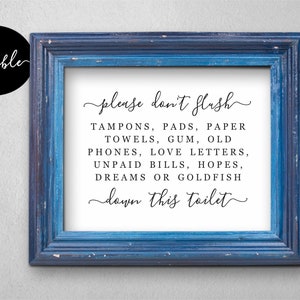 please don't flush
TAMPONS, PADS, PAPER
TOWELS, GUM, OLD
PHONES, LOVE LETTERS,
UNPAID BILLS, HOPES,
DREAMS OR GOLDFISH
down this toilet